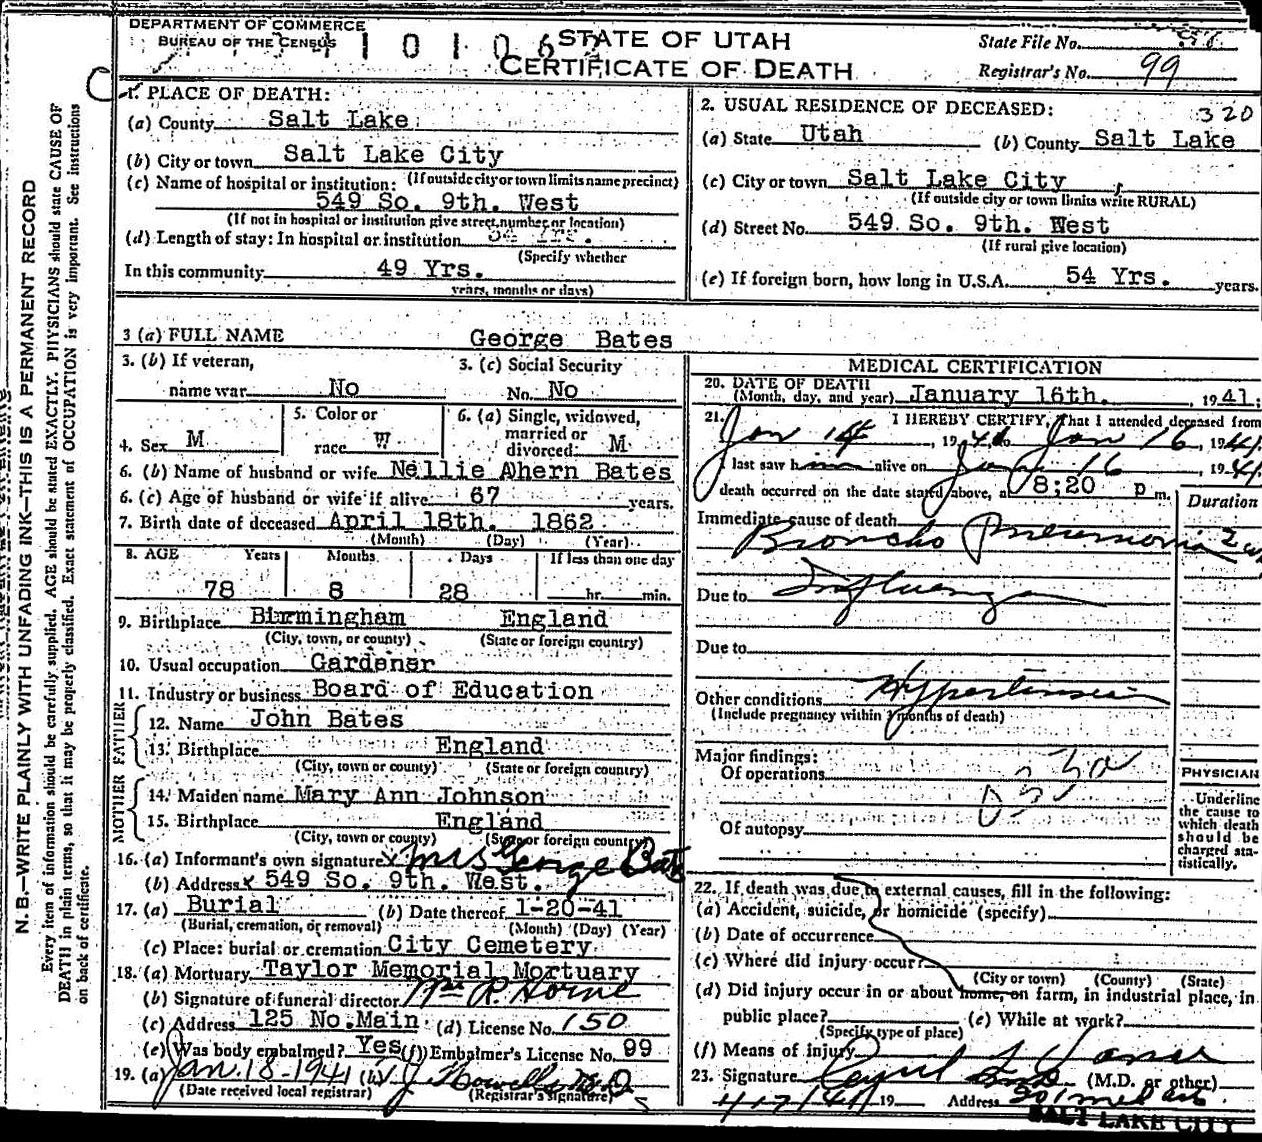 DEPARTMENT OF COMMERCE
BUREAU OF THE CENSUS
STATE OF UTAH
CERTIFICATE OF DEATH
State File No.
Registrar's No. 99
1. PLACE OF DEATH:
(a) County Salt Lake
(b) City or town Salt Lake City
(If outside city or town limits name precinct)
(c) Name of hospital or institution:
549 So. 9th. West
(If not in hospital or institution give street number or location)
(d) Length of stay: In hospital or institution
(Specify whether
In this community 49 Yrs.
years, months or days)
2. USUAL RESIDENCE OF DECEASED: 320
(a) State Utah (b) County Salt Lake
(c) City or town Salt Lake City
(If outside city or town limits write RURAL)
(d) Street No. 549 So. 9th. West
(If rural give location)
(e) If foreign born, how long in U.S.A. 54 Yrs. years.
3 (a) FULL NAME George Bates
3. (b) If veteran,
name war No
3. (c) Social Security
No. No
4. Sex M
5. Color or
race W
6. (a) Single, widowed,
married or
divorced M
6. (b) Name of husband or wife Nellie Ahern Bates
6. (c) Age of husband or wife if alive 67 years.
7. Birth date of deceased April 18th. 1862
(Month) (Day) (Year)
8. AGE Years Months Days If less than one day
78 8 28 hr. min.
9. Birthplace Birmingham England
(City, town, or county) (State or foreign country)
10. Usual occupation Gardener
11. Industry or business Board of Education
FATHER
12. Name John Bates
13. Birthplace England
(City, town or county) (State or foreign country)
MOTHER
14. Maiden name Mary Ann Johnson
15. Birthplace England
(City, town or county) (State or foreign country)
16. (a) Informant's own signature x Mrs George Bates
(b) Address x 549 So. 9th. West.
17. (a) Burial (b) Date thereof 1-20-41
(Burial, cremation, or removal) (Month) (Day) (Year)
(c) Place: burial or cremation City Cemetery
18. (a) Mortuary Taylor Memorial Mortuary
(b) Signature of funeral director Wm R. Horne
(c) Address 125 No. Main (d) License No. 150
(e) Was body embalmed? Yes (f) Embalmer's License No. 99
19. (a) Jan. 18-1941 (b) Howells M.D.
(Date received local registrar) (Registrar's signature)
MEDICAL CERTIFICATION
20. DATE OF DEATH
(Month, day, and year) January 16th. , 1941.
21. I HEREBY CERTIFY, That I attended deceased from
Jan 14, 1941 to Jan 16, 1941
I last saw him alive on Jan 16, 1941
death occurred on the date stated above, at 8:20 p m.
Duration
Immediate cause of death
Broncho Pneumonia
Due to Influenza
Due to
Other conditions Hypertension
(Include pregnancy within 3 months of death)
Major findings:
Of operations
Of autopsy
PHYSICIAN
Underline
the cause to
which death
should be
charged sta-
tistically.
22. If death was due to external causes, fill in the following:
(a) Accident, suicide, or homicide (specify)
(b) Date of occurrence
(c) Where did injury occur?
(City or town) (County) (State)
(d) Did injury occur in or about home, on farm, in industrial place, in
public place? (e) While at work?
(Specify type of place)
(f) Means of injury
23. Signature (M.D. or other)
19 Address
SALT LAKE CITY
N. B.—WRITE PLAINLY WITH UNFADING INK—THIS IS A PERMANENT RECORD
Every item of information should be carefully supplied. AGE should be stated EXACTLY. PHYSICIANS should state CAUSE OF
DEATH in plain terms, so that it may be properly classified. Exact statement of OCCUPATION is very important. See instructions
on back of certificate.